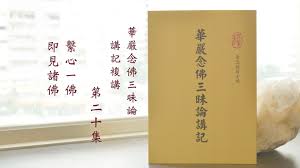 華嚴念佛三昧論
講記複講
第二十集
繫心一佛
即見諸佛
華嚴念佛三昧論講記